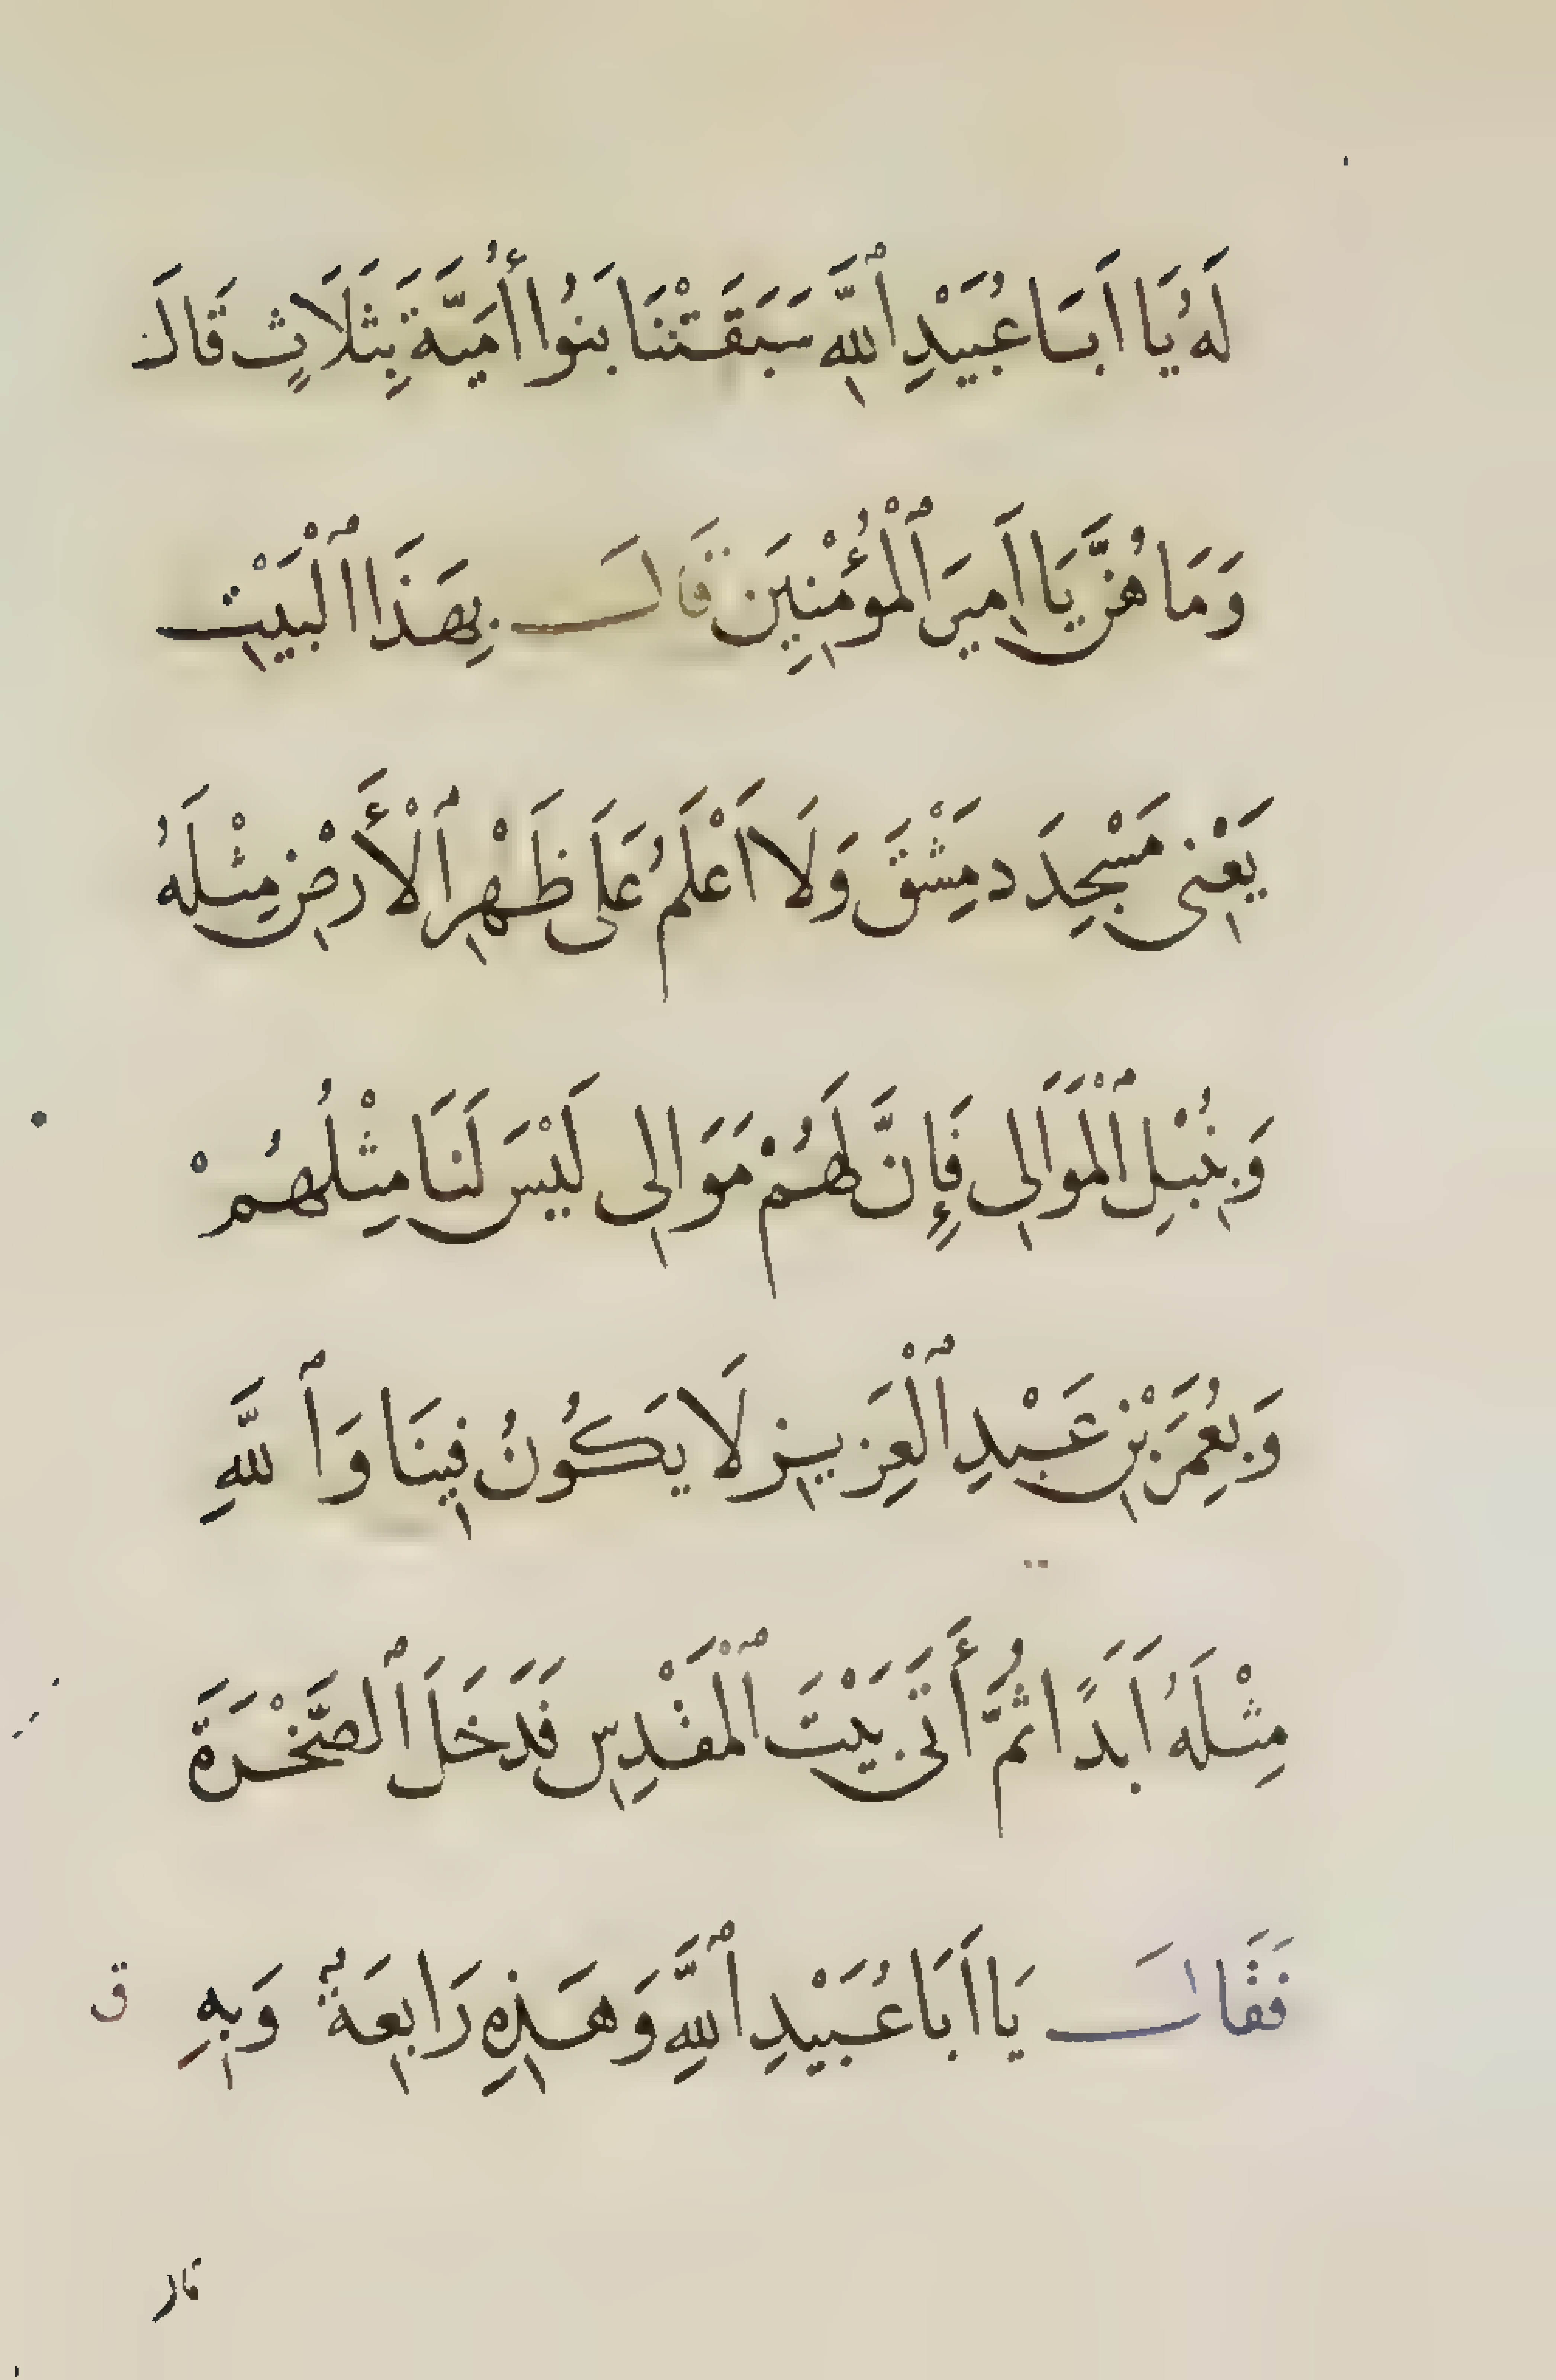 لَهُ يَا اَبَا عُبَيْدِ ٱللَّهِ سَبَقَتْنَا بَنُوا أُمَيَّةَ بِثَلَاثٍ قَالَ
وَمَا هُنَّ يَا اَمِيرَ ٱلْمُؤْمِنِينَ قَالَ بِهَذَا ٱلْبَيْتِ
يَعْنِى مَسْجِدَ دِمَشْقَ وَلَا اَعْلَمُ عَلَى ظَهْرِ ٱلْأَرْضِ مِثْلَهُ
وَبِنُبْلِ ٱلْمَوَالِى فَإِنَّ لَهُمْ مَوَالِى لَيْسَ لَنَا مِثْلُهُمْ
وَبِعُمَرَ بْنِ عَبْدِ ٱلْعَزِيزِ لَا يَكُونُ فِينَا وَٱللَّهِ
مِثْلَهُ اَبَدًا ثُمَّ أَتَى بَيْتَ ٱلْمَقْدِسِ فَدَخَلَ ٱلصَّخْرَةَ
فَقَالَ يَا اَبَا عُبَيْدِ ٱللَّهِ وَهَذِهِ رَابِعَةٌ وَبِهِ ق